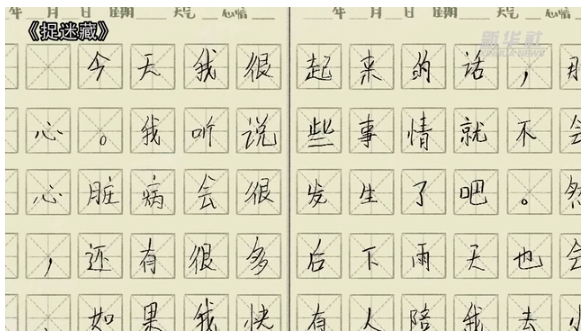 年 月 日 星期 天气 心情
年 月 日 星期 天气 心情
《捉迷藏》
新华社
今天我很
心。我听说
心脏病会很
，还有很多
，如果我快
起来的话，那
些事情就不会
发生了吧。然
后下雨天也会
有人陪我去